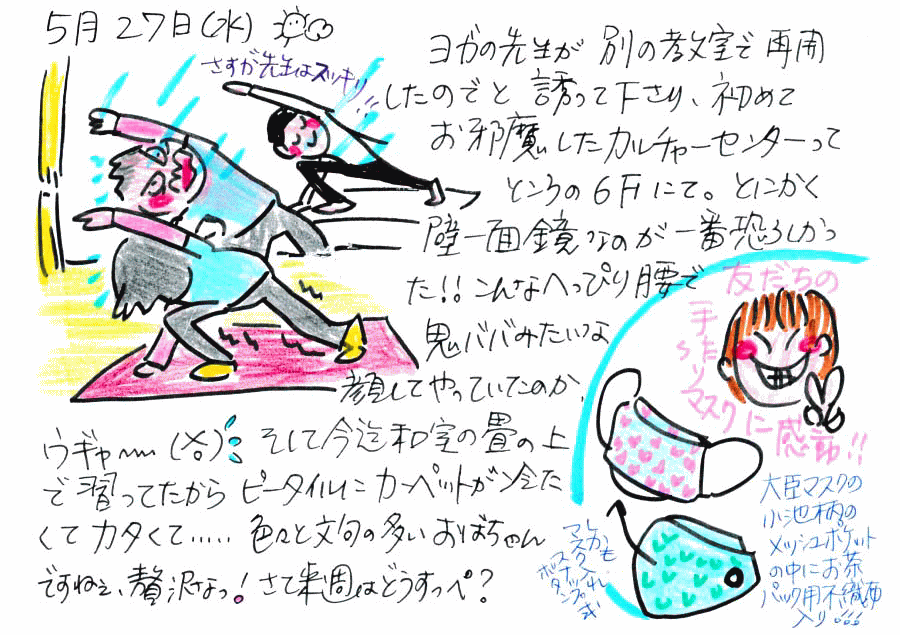 5月27日(水)
さすが先生はスッキリ!!
ヨガの先生が 別の教室で再開
したのでと 誘って下さり、初めて
お邪魔したカルチャーセンターって
ところの6Fにて。とにかく
壁一面鏡なのが一番恐ろしかっ
た!!こんなへっぴり腰で
鬼ババみたいな
顔してやっていたのか、
ウギャ〜
そして今迄和室の畳の上
で習ってたから ピータイルにカーペットが冷た
くてカタくて……色々と文句の多いおばちゃん
ですねぇ、贅沢なっ!さて来週はどうすっぺ?
友だちの
手作り
マスクに
感動!!
大臣マスクの
小池柄の
メッシュポケット
の中にお茶
パック用不織布
入り
しかも
マスク入れ
スナップ
ボタン式